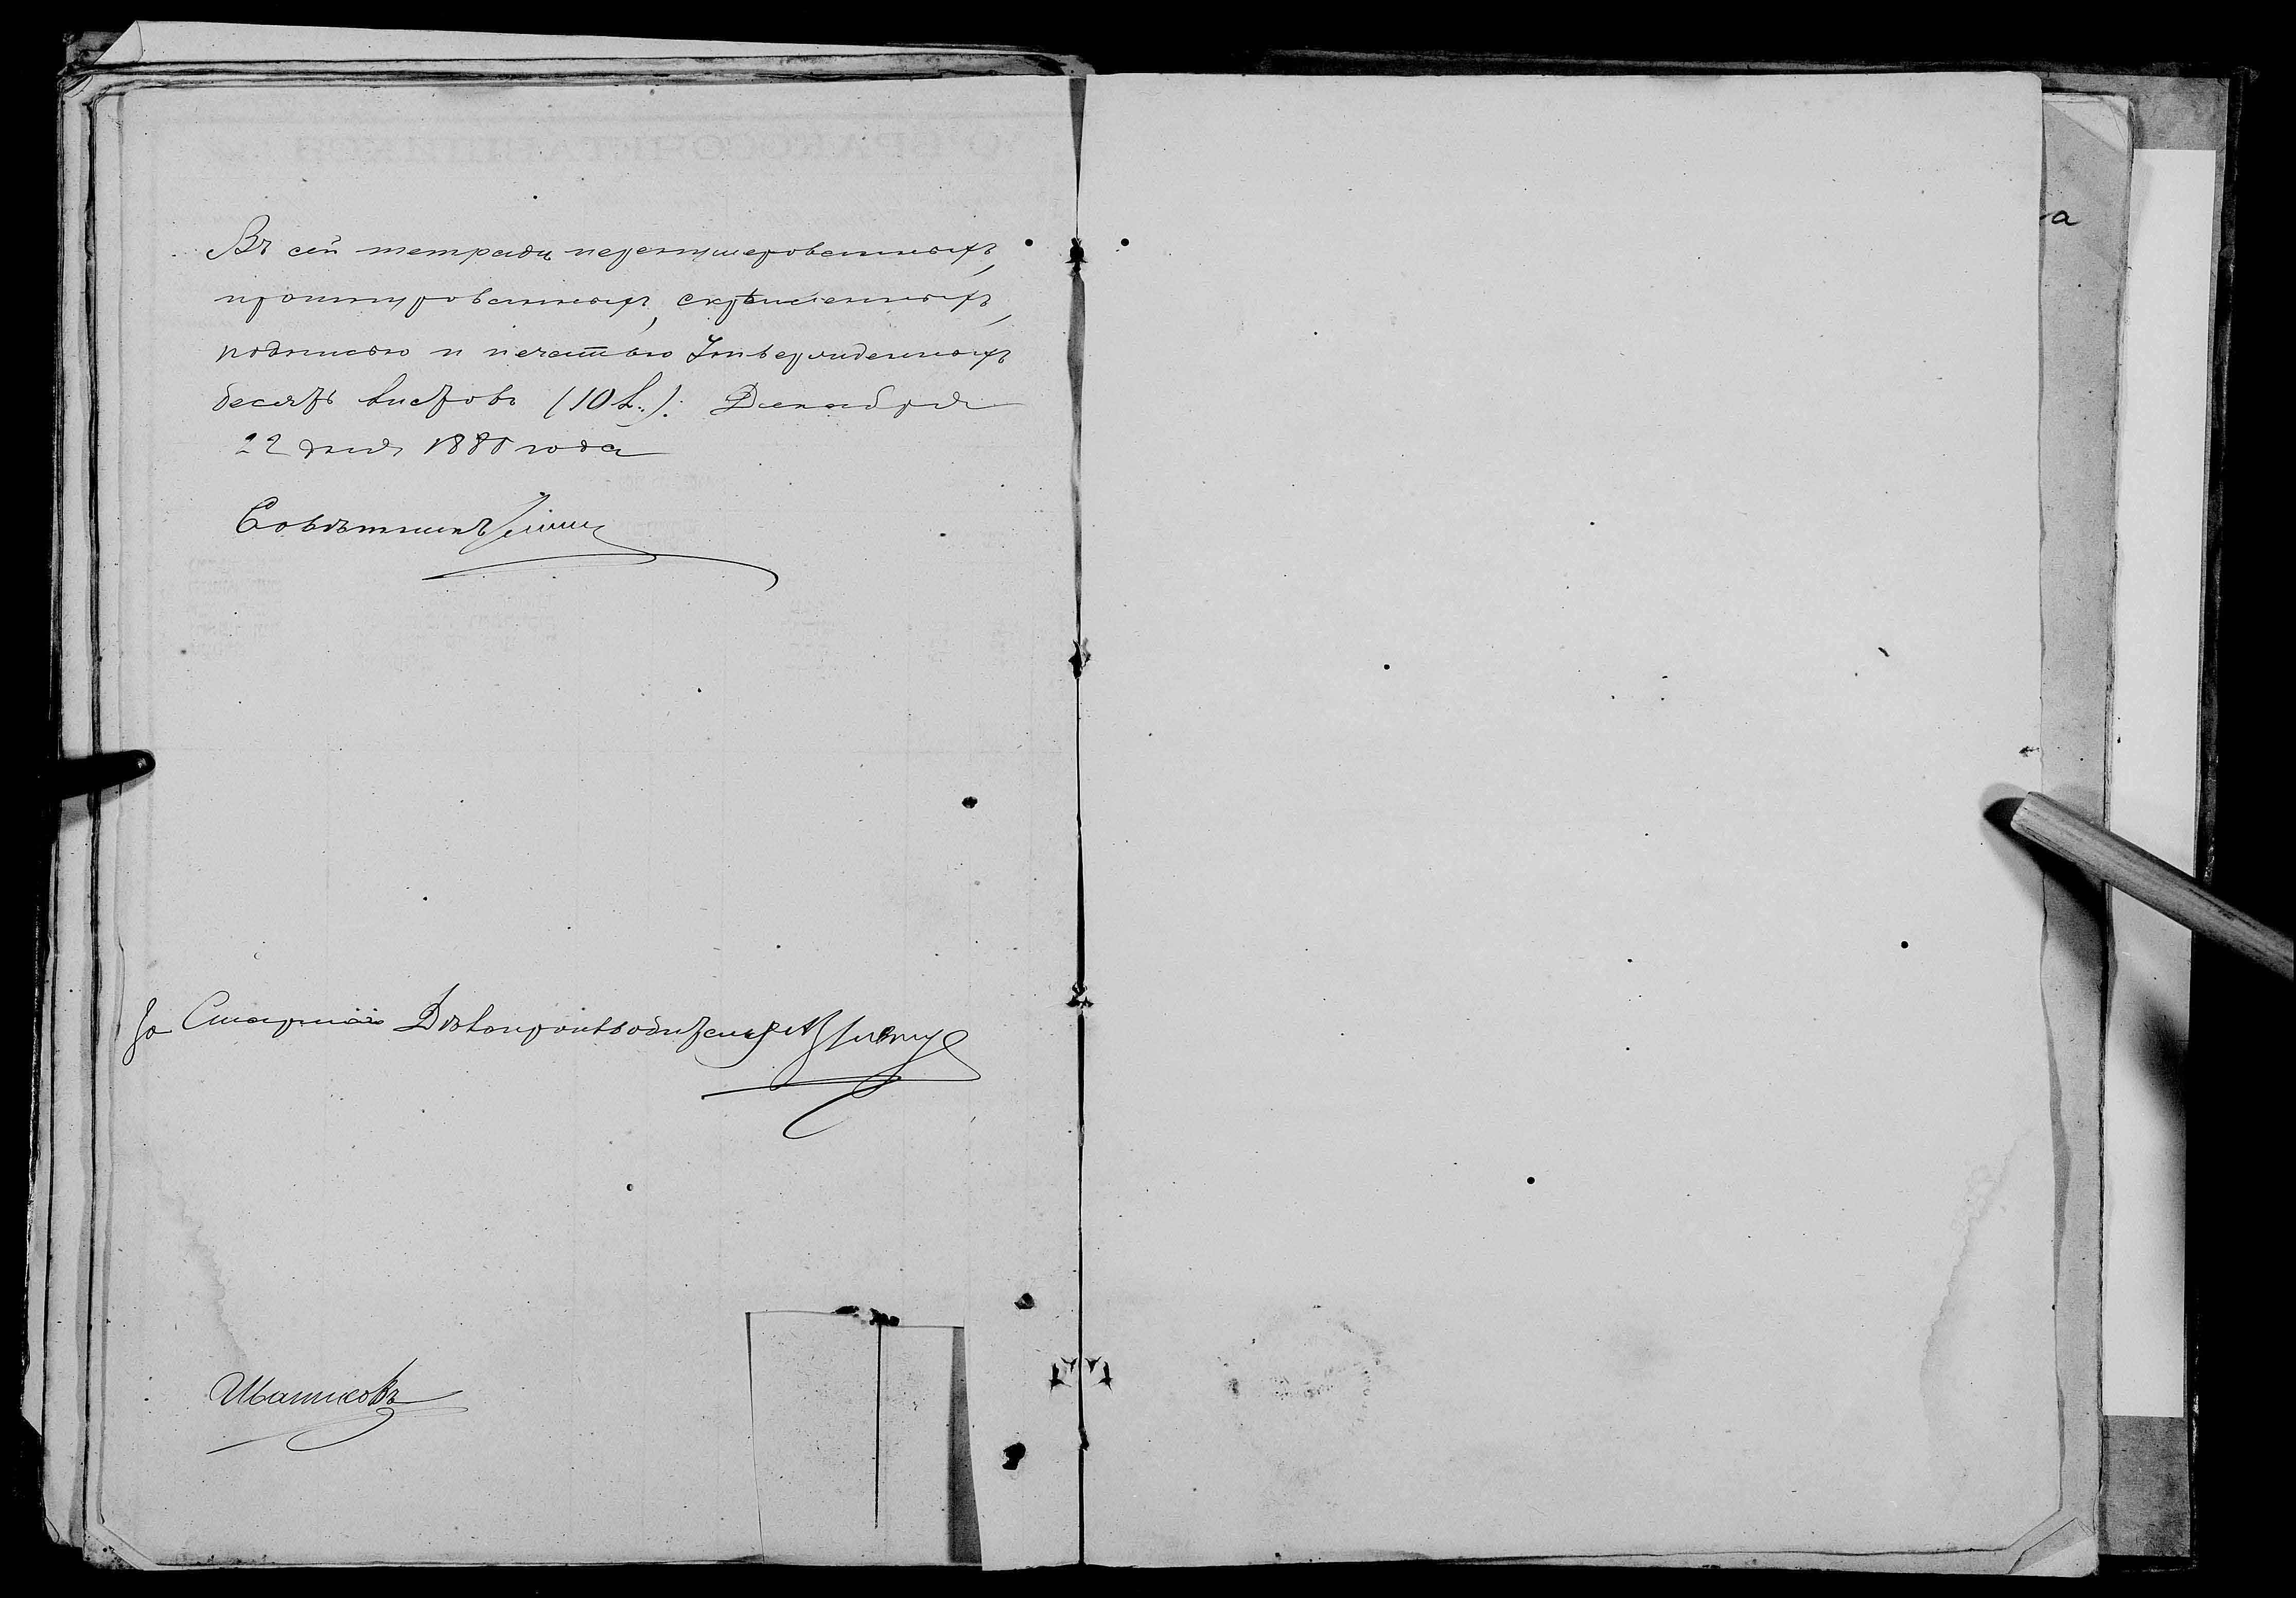 Въ сей тетради перенумерованныхъ,
прошнурованныхъ, скрѣпленныхъ,
подписью и печатью утвержденныхъ
десять листовъ (10 л.). Декабря
22 дня 1880 года
Совѣтникъ
За Старшаго Дѣлопроизводителя
Иванисовъ
а